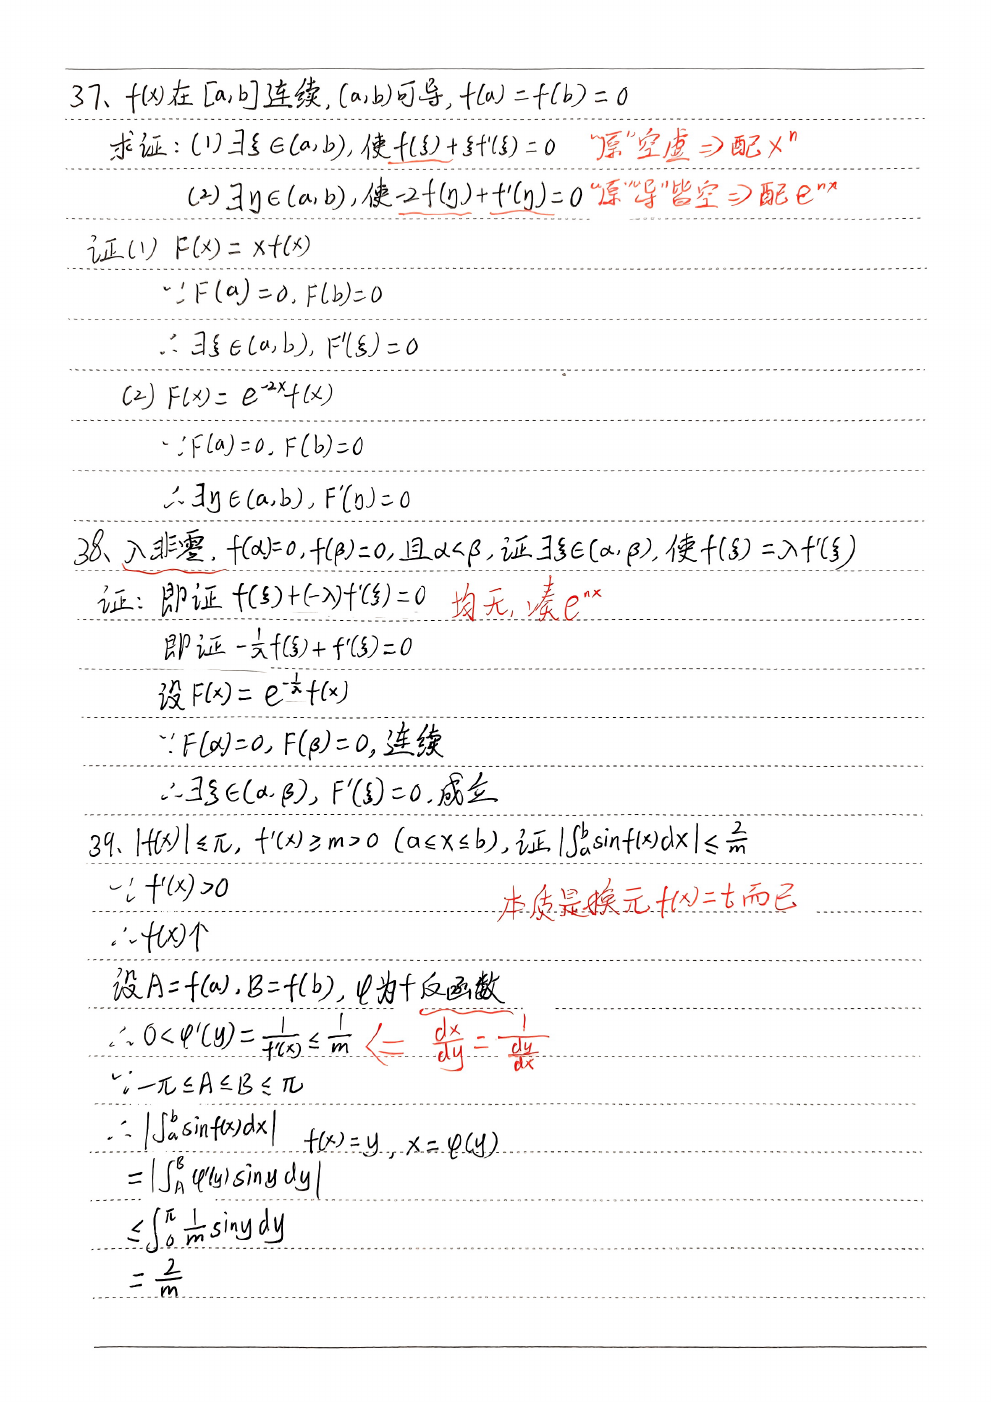 37、f(x)在[a,b]连续,(a,b)可导,f(a)=f(b)=0
求证:(1)∃ξ∈(a,b),使f(ξ)+ξf'(ξ)=0 "原"空虚⇒配xⁿ
(2)∃η∈(a,b),使-2f(η)+f'(η)=0 "原""导"皆空⇒配e^{nx}
证(1) F(x)=xf(x)
∵F(a)=0,F(b)=0
∴∃ξ∈(a,b),F'(ξ)=0
(2) F(x)=e^{-2x}f(x)
∵F(a)=0,F(b)=0
∴∃η∈(a,b),F'(η)=0
38、λ非零,f(α)=0,f(β)=0,且α<β,证∃ξ∈(α,β),使f(ξ)=λf'(ξ)
证:即证 f(ξ)+(-λ)f'(ξ)=0 均无,凑e^{nx}
即证 -1/λ f(ξ)+f'(ξ)=0
设F(x)=e^{-1/λ}f(x)
∵F(α)=0,F(β)=0,连续
∴∃ξ∈(α,β),F'(ξ)=0,成立
39、|f(x)|≤π,f'(x)≥m>0 (a≤x≤b),证|∫_a^b sinf(x)dx|≤2/m
∵f'(x)>0
本质是换元f(x)=t而已
∴f(x)个
设A=f(a),B=f(b),φ为f反函数
∴0<φ'(y)=1/f'(x)≤1/m ⇐ dx/dy=1/(dy/dx)
∵-π≤A≤B≤π
∴|∫_a^b sinf(x)dx| f(x)=y,x=φ(y)
=|∫_A^B φ'(y)sinydy|
≤∫_0^π 1/m sinydy
=2/m